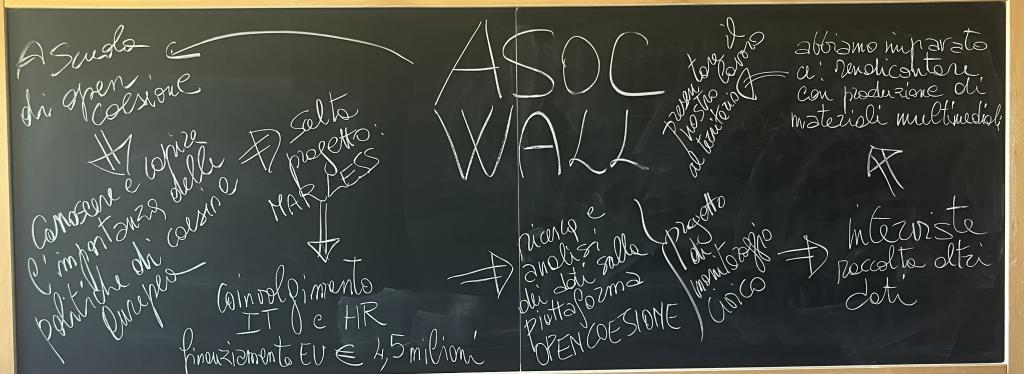 ASOC
WALL
A Scuola
di open
coesione
conoscere e capire
l'importanza delle
politiche di coesione
europea
scelta
progetto:
MARLESS
coinvolgimento
IT e HR
finanziamento EU € 4,5 milioni
ricerca e
analisi
dei dati sulla
piattaforma
OPENCOESIONE
progetto
di
monitoraggio
civico
interviste
raccolta altri
dati
abbiamo imparato
a rendicontare
con produzione di
materiali multimediali
presentare il
nostro lavoro
al territorio